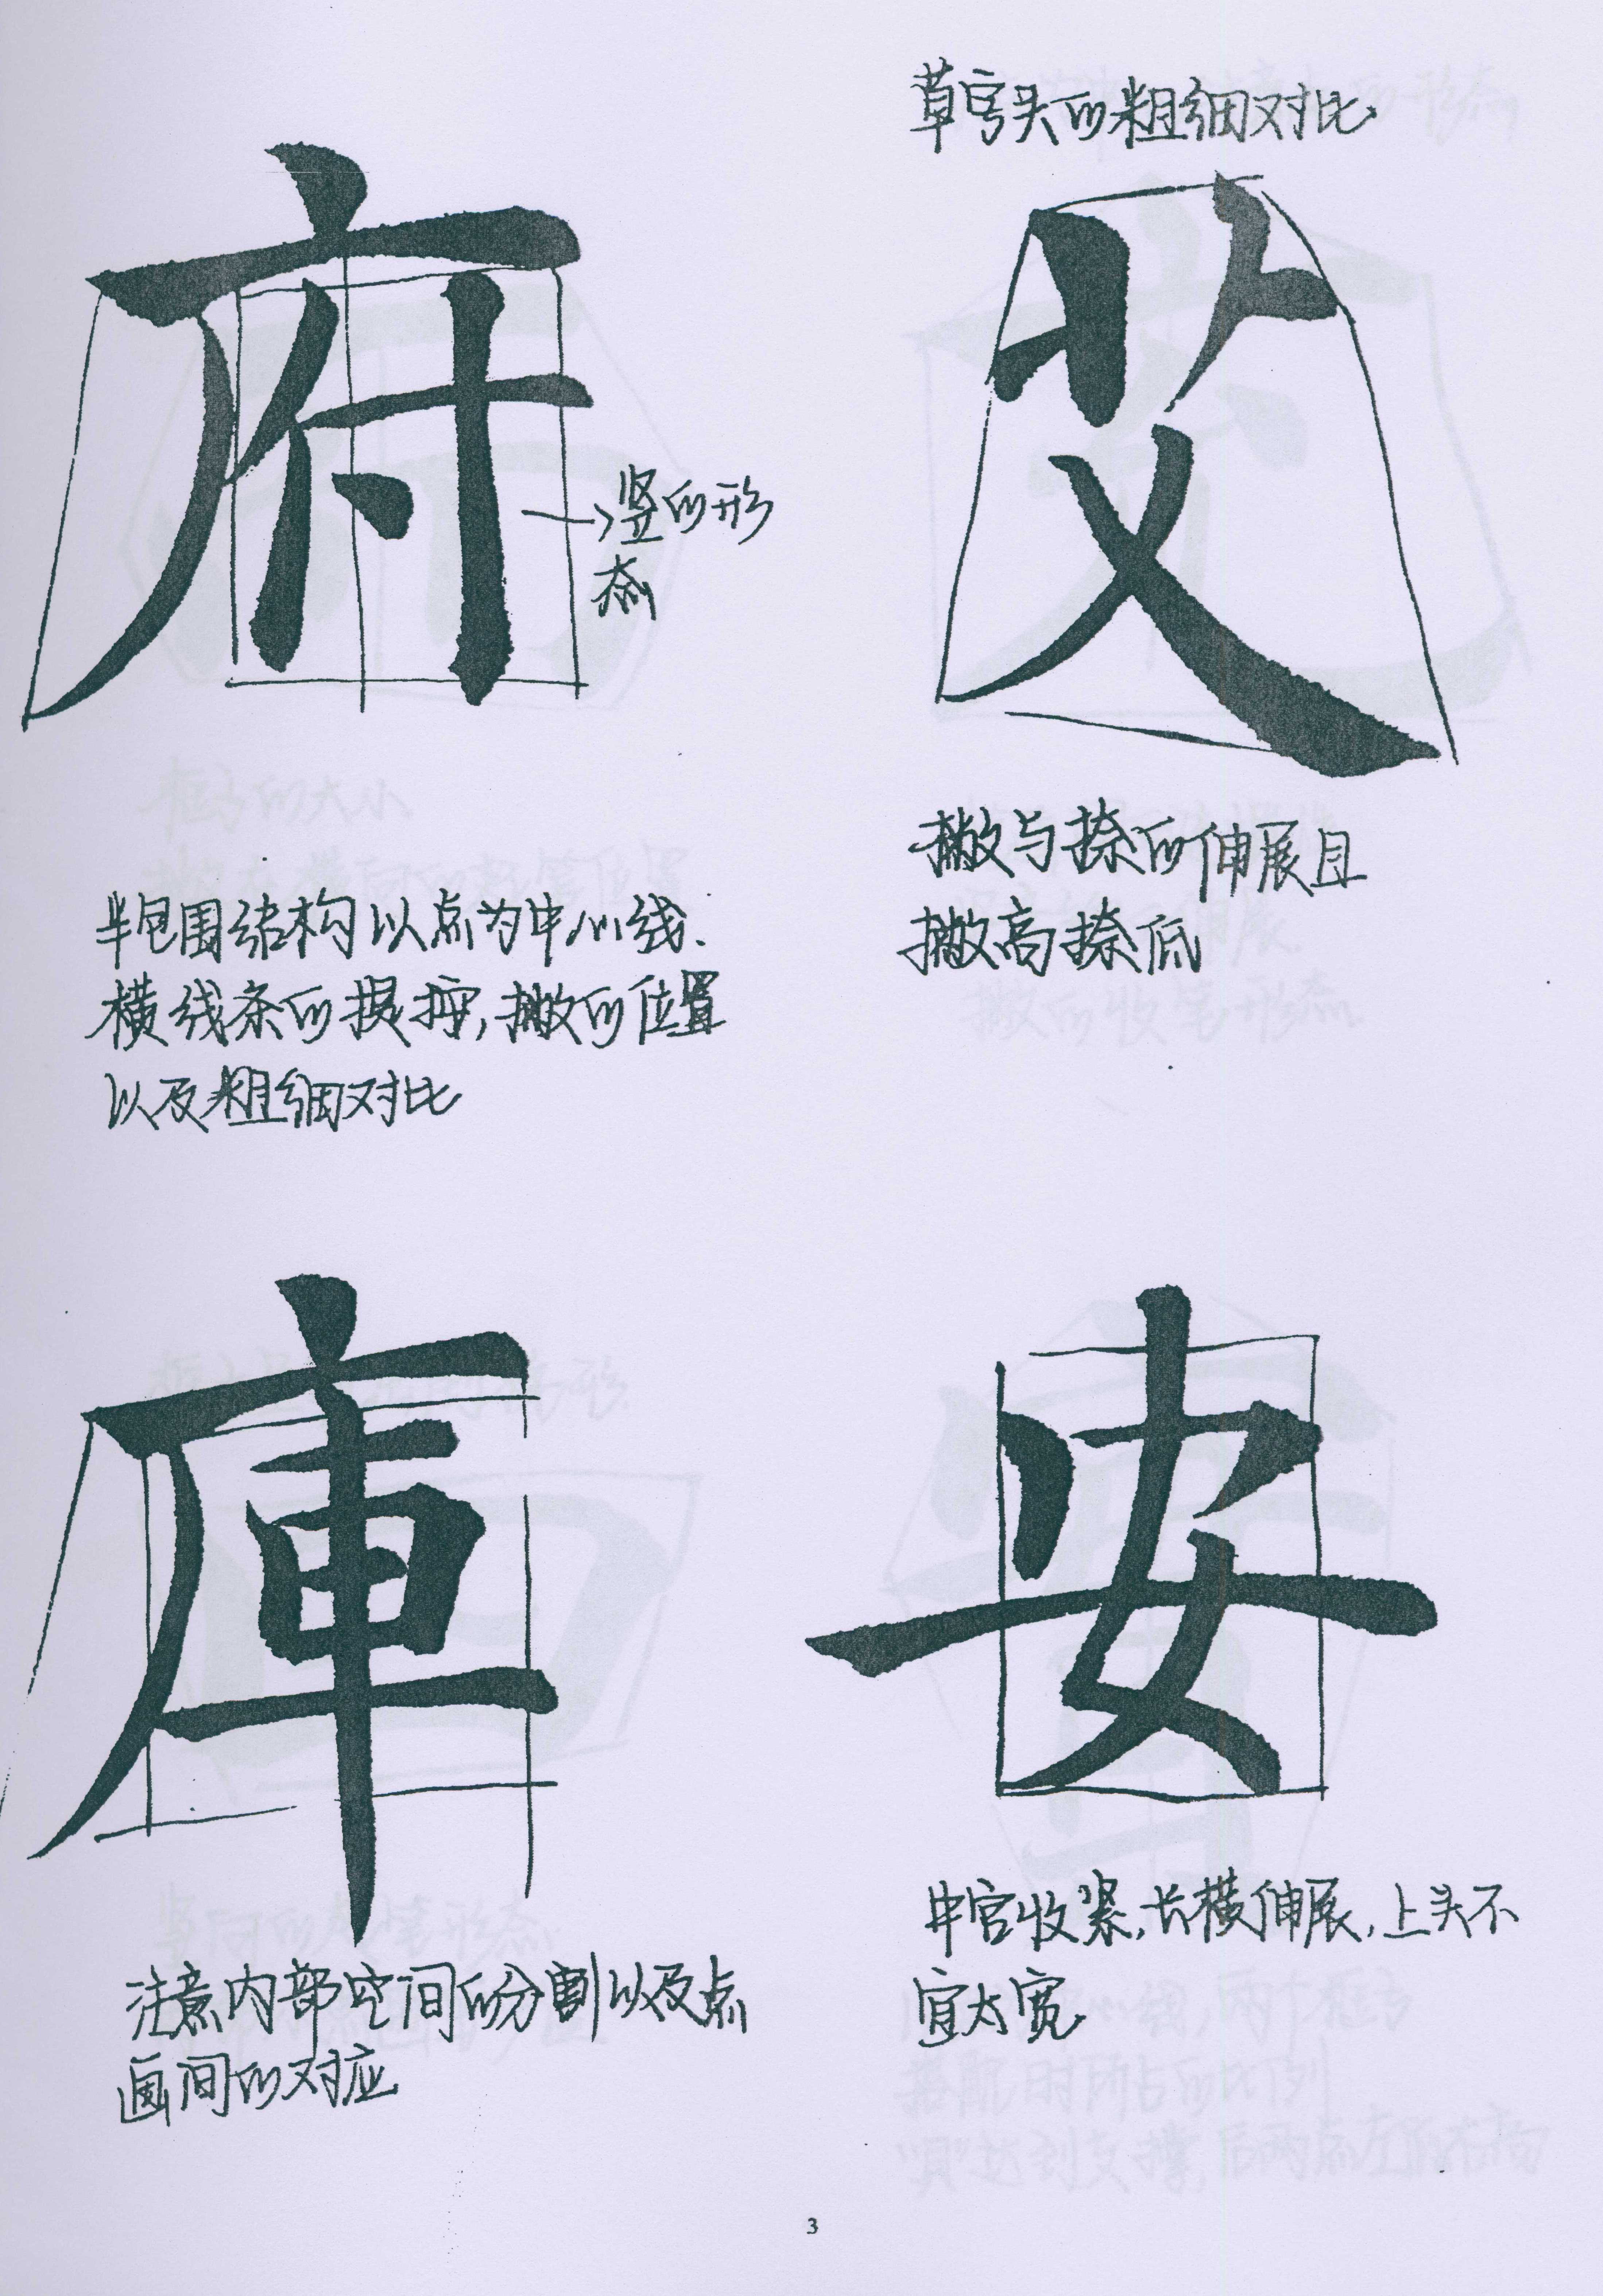 草字头的粗细对比
府
艾
→竖的形
态
撇与捺的伸展且
撇高捺低
半包围结构以点为中心线.
横线条的提按,撇的位置
以及粗细对比
庫
安
中宫收紧,长横伸展,上头不
宜太宽
注意内部空间的分割以及点
画间的对应
3